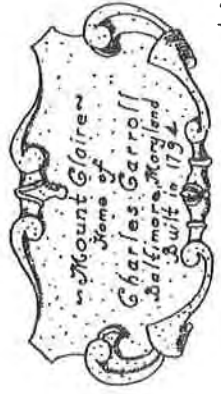 ~Mount Claire~
Home of
Charles Carroll
Baltimore, Maryland
Built in 1794